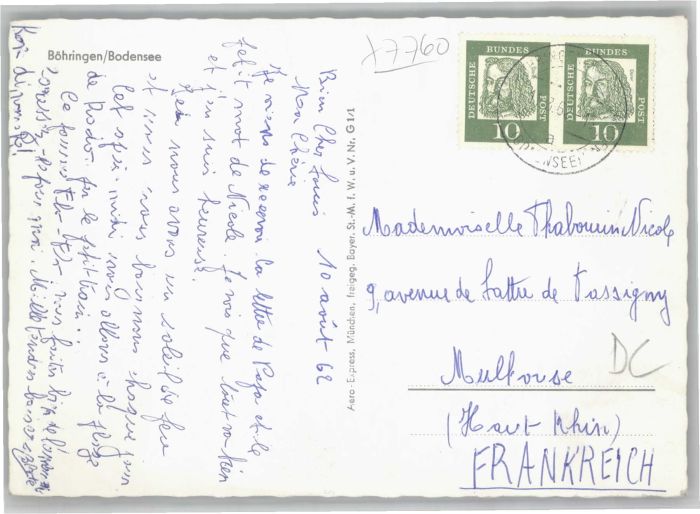 Böhringen/Bodensee
x7760
DEUTSCHE BUNDES POST
10
DEUTSCHE BUNDES POST
10
Bien Cher Louis 10 août 62
Mon Chérie
Je viens de recevoir la lettre de Papa et le
petit mot de Nicole. Je vois que tout va bien
et j'en suis heureuse.
Ici nous avons un soleil de feu
et nous nous baignons chaque jour
Cet après midi nous allons à la plage
de Rado par le petit train..
Aero-Express, München, freigeg. Bayer. St.-M. f. W. u. V. Nr. G 1/1
Mademoiselle Thabouin Nicole
9, avenue de Lattre de Tassigny
Mulhouse
(Haut Rhin)
FRANKREICH
DC